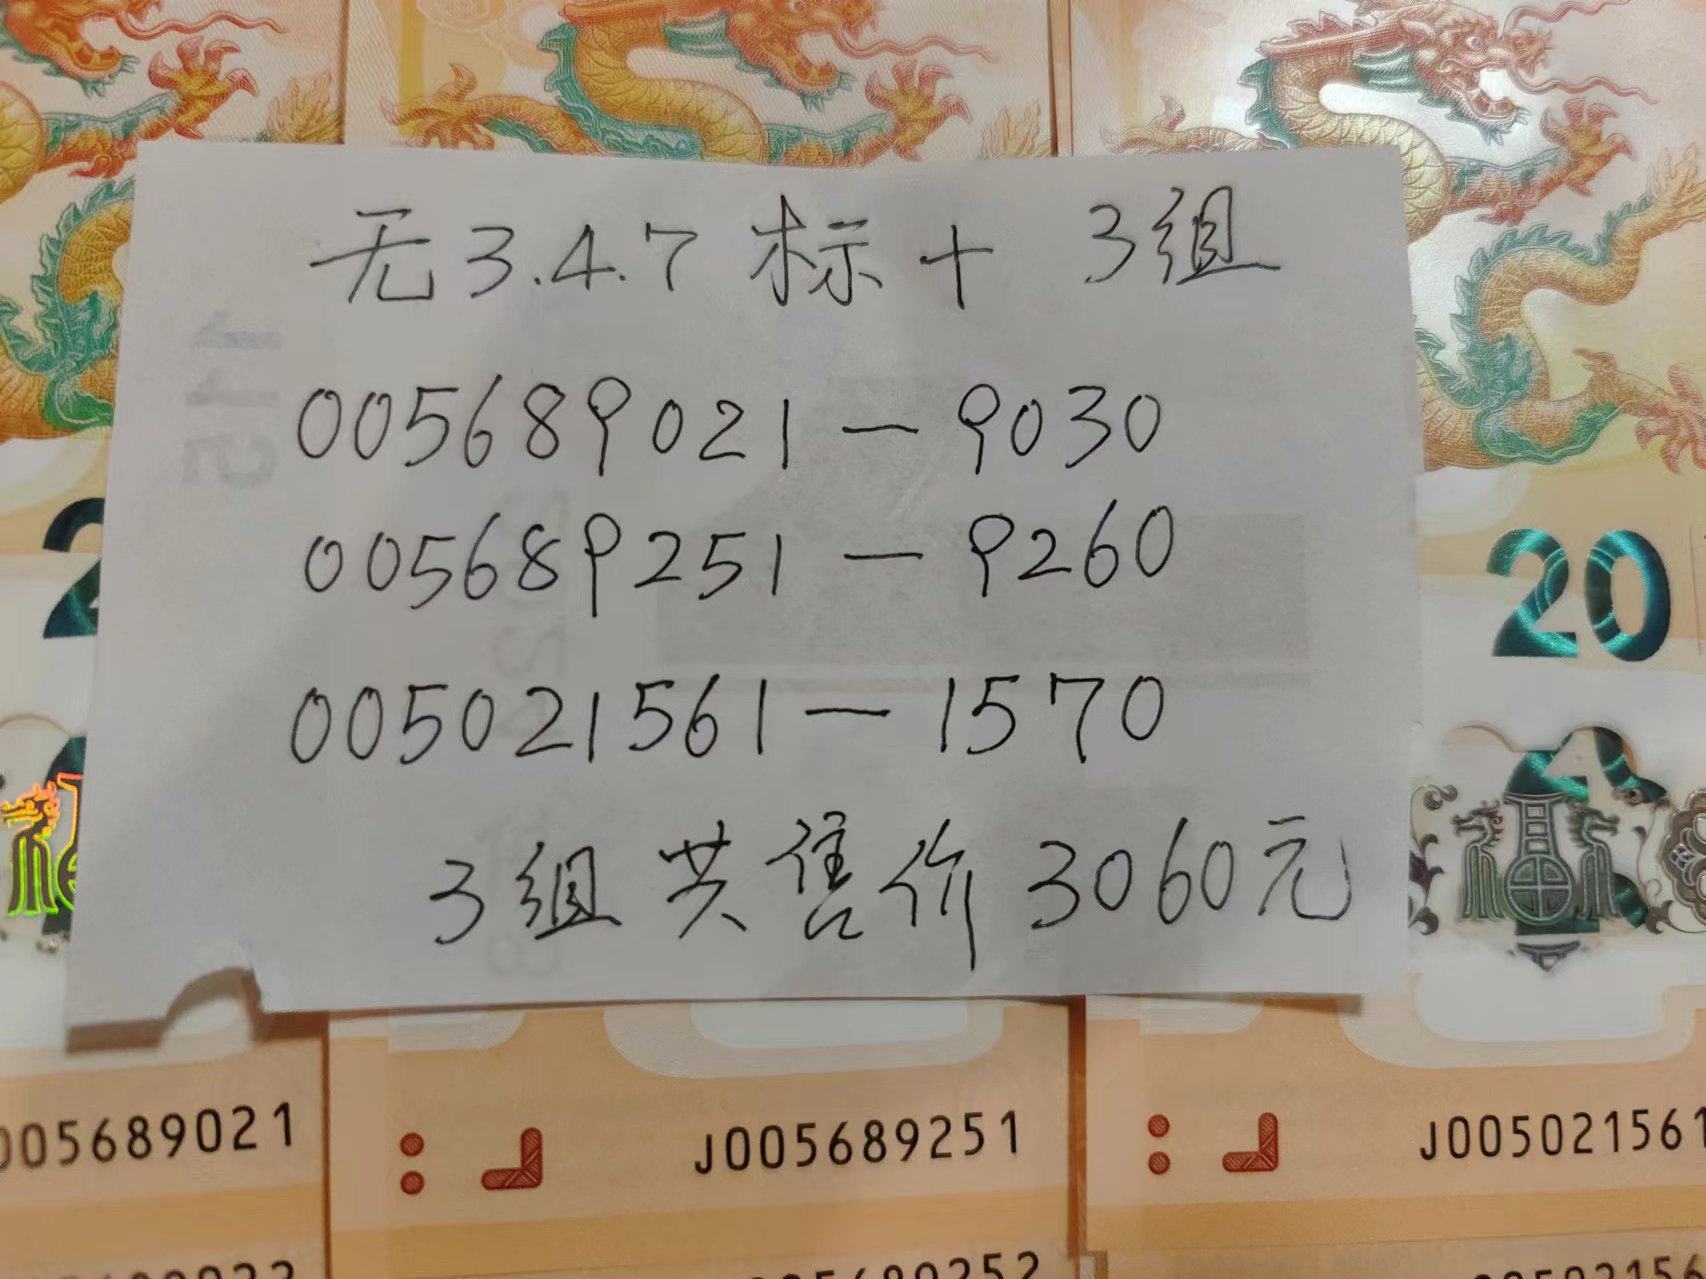 无3.4.7标十 3组
005689021—9030
005689251—9260
005021561—1570
3组共售价3060元
20
005689021
J005689251
J005021561